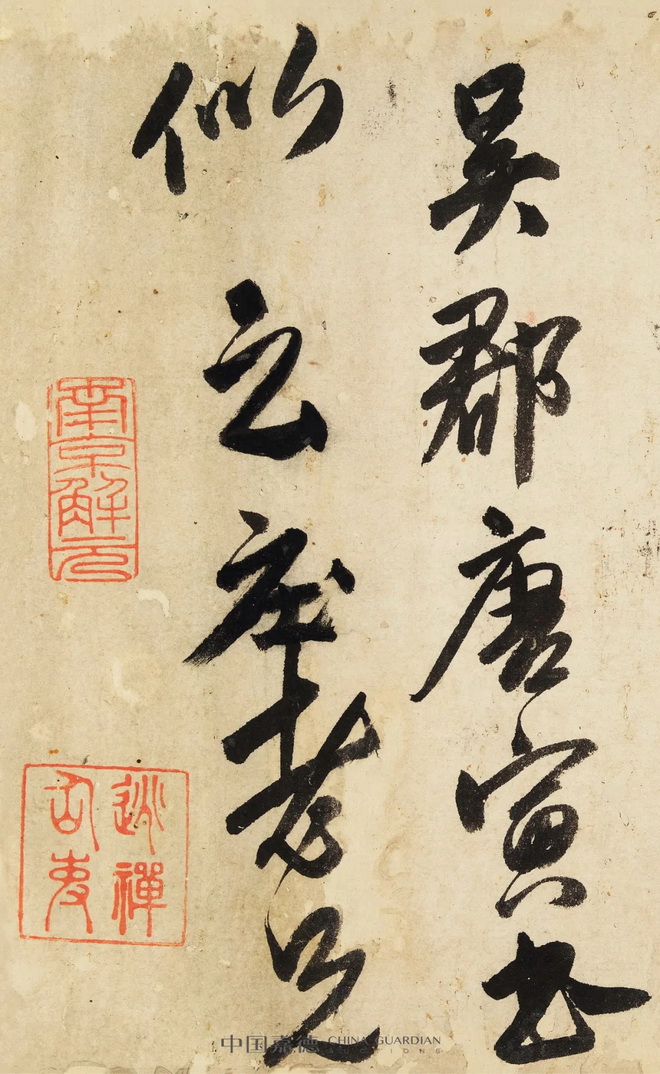 吳郡唐寅書
似立庄老兄
南京解元
逃禪仙吏
中国嘉德 CHINA GUARDIAN
AUCTIONS